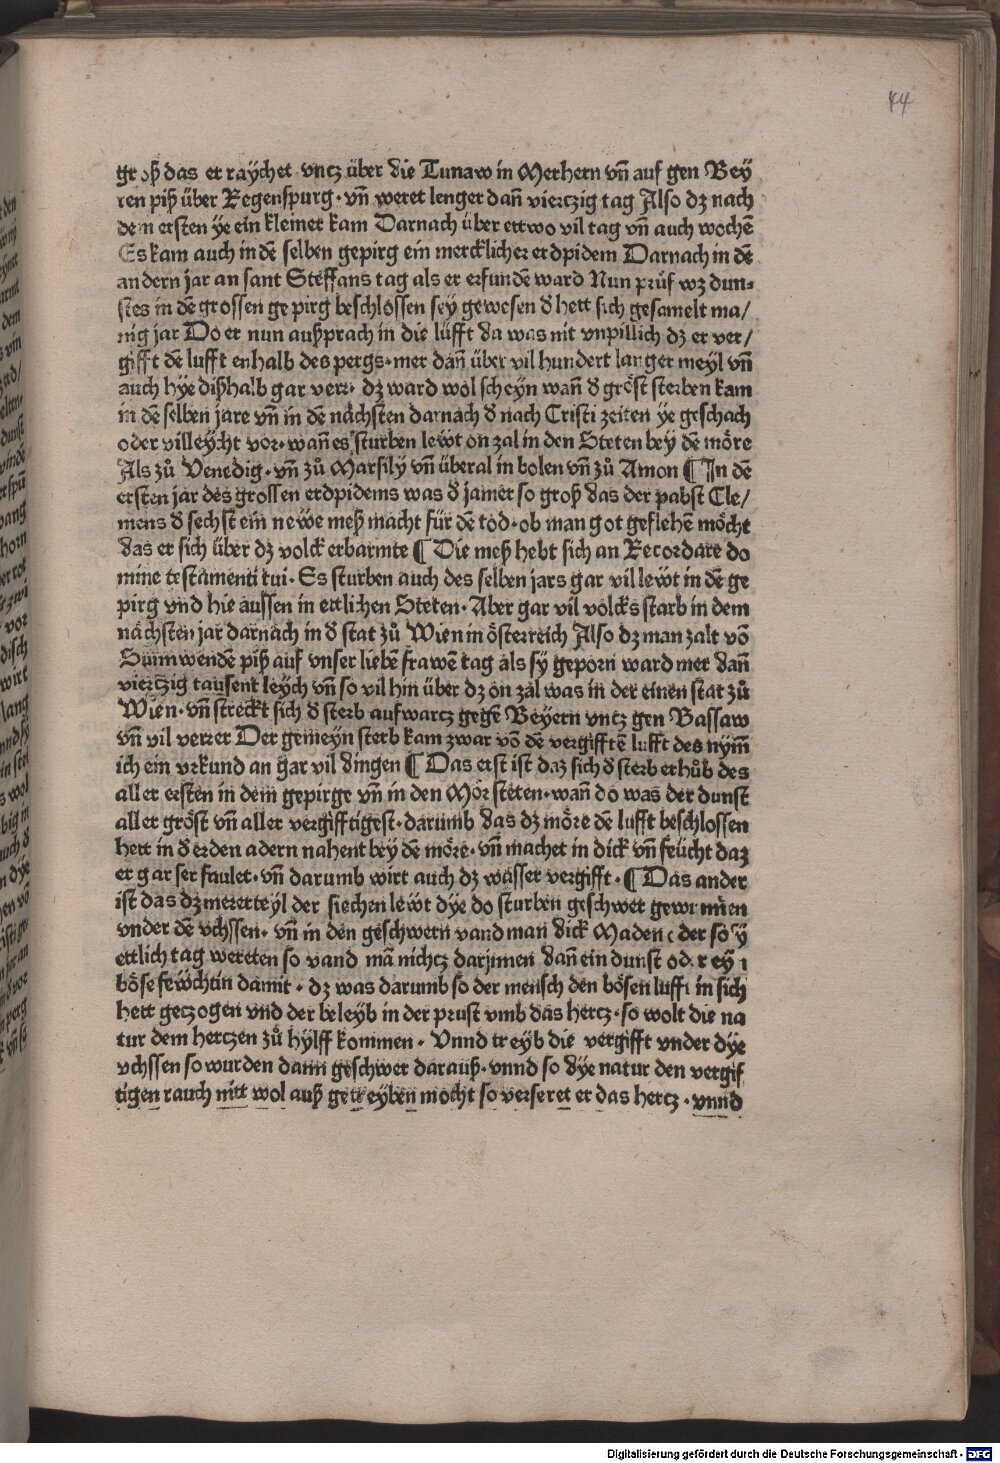 44
groß das er raychet vncz über die Tunaw in Merhern vñ auf gen Bey
ren piß über Regenspurg · vñ weret lenger dañ vierczig tag Also dz nach
dem ersten ye ein kleiner kam Darnach über ettwo vil tag vñ auch wochē
Es kam auch in dē selben gepirg ein mercklicher erdpidem Darnach in dē
andern jar an sant Steffans tag als er erfundē ward Nun prüf wz dun⸗
stes in dē grossen gepirg beschlossen sey gewesen d̕ hett sich gesamelt ma/
nig jar Do er nun außprach in die lüfft da was nit vnpillich dz er ver/
gifft dē lufft enhalb des pergs · mer dañ über vil hundert langer meyl vñ
auch hye dißhalb gar verr · dz ward wol scheyn wañ d̕ gröst sterben kam
in dē selben jare vñ in dē nächsten darnach d̕ nach Cristi zeiten ye geschach
oder villeycht vor · wañ es sturben lewt on zal in den Steten bey dē möre
Als zů Venedig · vñ zů Marsily vñ überal in bolen vñ zů Amon ¶ In dē
ersten jar des grossen erdpidems was d̕ jamer so groß das der pabst Cle/
mens d̕ sechst ein newe meß macht für dē tod · ob man got geflehē möcht
das er sich über dz volck erbarmte ¶ Die meß hebt sich an Recordare do
mine testamenti tui · Es sturben auch des selben jars gar vil lewt in dē ge
pirg vnd hie aussen in ettlichen Steten · Aber gar vil volcks starb in dem
nächsten jar darnach in d̕ stat zů Wien in österreich Also dz man zalt vō
Sunnwendē piß auf vnser liebē frawē tag als sy geporn ward mer dañ
vierczig tausent leych vñ so vil hin über dz on zal was in der einen stat zů
Wien · vñ streckt sich d̕ sterb aufwarcz gegē Beyern vntz gen Bassaw
vñ vil verrer Der gemeyn sterb kam zwar vō dē vergifftē lufft des nym̄
ich ein vrkund an gar vil dingen ¶ Das erst ist daz sich d̕ sterb erhůb des
aller ersten in dem gepirge vñ in den Mör steten · wañ do was der dunst
aller gröst vñ aller vergifftigest · darumb das dz möre dē lufft beschlossen
hett in d̕ erden adern nahent bey dē möre · vñ machet in dick vñ feücht daz
er gar ser faulet · vñ darumb wirt auch dz wasser vergifft · ¶ Das ander
ist das dz merer teyl der siechen lewt dye do sturben geschwer gewunnen
vnder dē vchssen · vñ in den geschwern vand man dick Maden der so sy
ettlich tag wereten so vand mā nichcz darjnnen dañ ein dunst oder eyn
böse fewchtin damit · dz was darumb so der mensch den bösen lufft in sich
hett geczogen vnd der beleyb in der prust vmb das hercz · so wolt die na
tur dem herczen zů hylff kommen · Vnnd treyb die vergifft vnder dye
vchssen so wurden dann geschwer darauß · vnnd so dye natur den vergif
tigen rauch nitt wol auß getreyben mocht so verseret er das hercz · vnnd
Digitalisierung gefördert durch die Deutsche Forschungsgemeinschaft - DFG